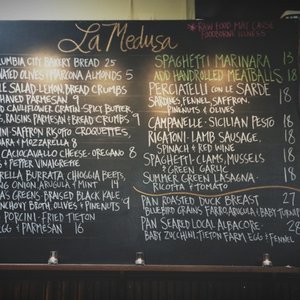 La Medusa
* RAW FOOD MAY CAUSE
FOODBORNE ILLNESS
COLUMBIA CITY BAKERY BREAD 25
OLIVES + MARCONA ALMONDS 5
SALAD LEMON BREAD CRUMBS
SHAVED PARMESAN 9
CAULIFLOWER GRATIN SPICY BUTTER,
RAISINS PARMESAN + BREAD CRUMBS 9
SAFFRON RISOTTO CROQUETTES,
+ MOZZARELLA 8
CACIOCAVALLO CHEESE · OREGANO 8
+ PEPPER VINAIGRETTE
BURRATA CHIOGGIA BEETS,
ONION, ARUGULA + MINT 14
GREENS BRAISED BLACK KALE
ANCHOVY BROTH, OLIVES + PINENUTS 9
PORCINI · FRIED TIETON
EGG + PARMESAN 16
SPAGHETTI MARINARA 13
ADD HANDROLLED MEATBALLS 18
PERCIATELLI CON LE SARDE
SARDINES, FENNEL, SAFFRON, 18
PINENUTS & OLIVES
CAMPANELLE · SICILIAN PESTO 18
RIGATONI · LAMB SAUSAGE, 18
SPINACH + RED WINE
SPAGHETTI · CLAMS, MUSSELS 18
+ GREEN GARLIC
SUMMER GREEN LASAGNA · 18
RICOTTA + TOMATO
PAN ROASTED DUCK BREAST 27
BLUEBIRD GRAINS FARRO, ARUGULA + BABY TURNIPS
PAN SEARED LOCAL ALBACORE 28
BABY ZUCCHINI, TIETON FARM EGG + FENNEL